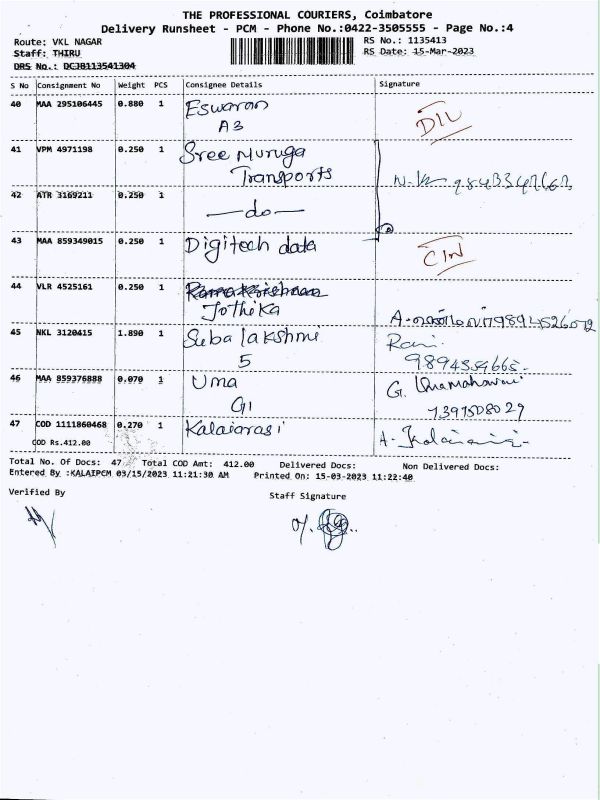 THE PROFESSIONAL COURIERS, Coimbatore
Delivery Runsheet - PCM - Phone No.:0422-3505555 - Page No.:4
Route: VKL NAGAR
RS No.: 1135413
Staff: THIRU
RS Date: 15-Mar-2023
DRS No.: DCJ8113541304
S No Consignment No Weight PCS Consignee Details Signature
40 MAA 295106445 0.880 1 Eswaran DIL
A3
41 VPM 4971198 0.250 1 Sree Muruga
Transports
42 ATR 3169211 0.250 1 —do—
43 MAA 859349015 0.250 1 Digitech data
44 VLR 4525161 0.250 1 Ramakrishnan
Jothika
45 NKL 3120415 1.890 1 Suba lakshmi Rani
5 9894354665
46 MAA 859376888 0.070 1 Uma G. Umamaheswari
G1
47 COD 1111860468 0.270 1 Kalaiarasi A. Kalaiarasi
COD Rs.412.00
Total No. Of Docs: 47 Total COD Amt: 412.00 Delivered Docs: Non Delivered Docs:
Entered By :KALAIPCM 03/15/2023 11:21:30 AM Printed On: 15-03-2023 11:22:40
Verified By Staff Signature